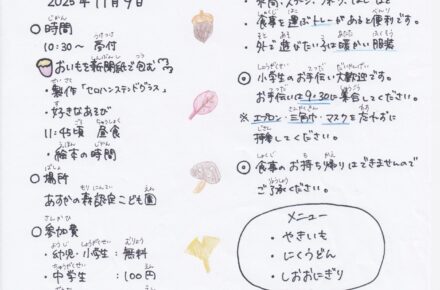 2025年 11月9日
○時間
10:30〜 受付
おいもを新聞紙で包む
・製作「セロハンステンドグラス」
・好きなあそび
11:45頃 昼食
・絵本の時間
○場所
あすかの森認定こども園
○参加費
・幼児・小学生：無料
・中学生：100円
・食事を運ぶトレーがあると便利です。
・外で遊びたい子は暖かい服装
◎小学生のお手伝い大歓迎です。
お手伝いは9:30に集合してください。
※エプロン・三角巾・マスクを忘れずに
持参してください。
◎食事のお持ち帰りはできませんので
ご了承ください。
メニュー
・やきいも
・にくうどん
・しおおにぎり